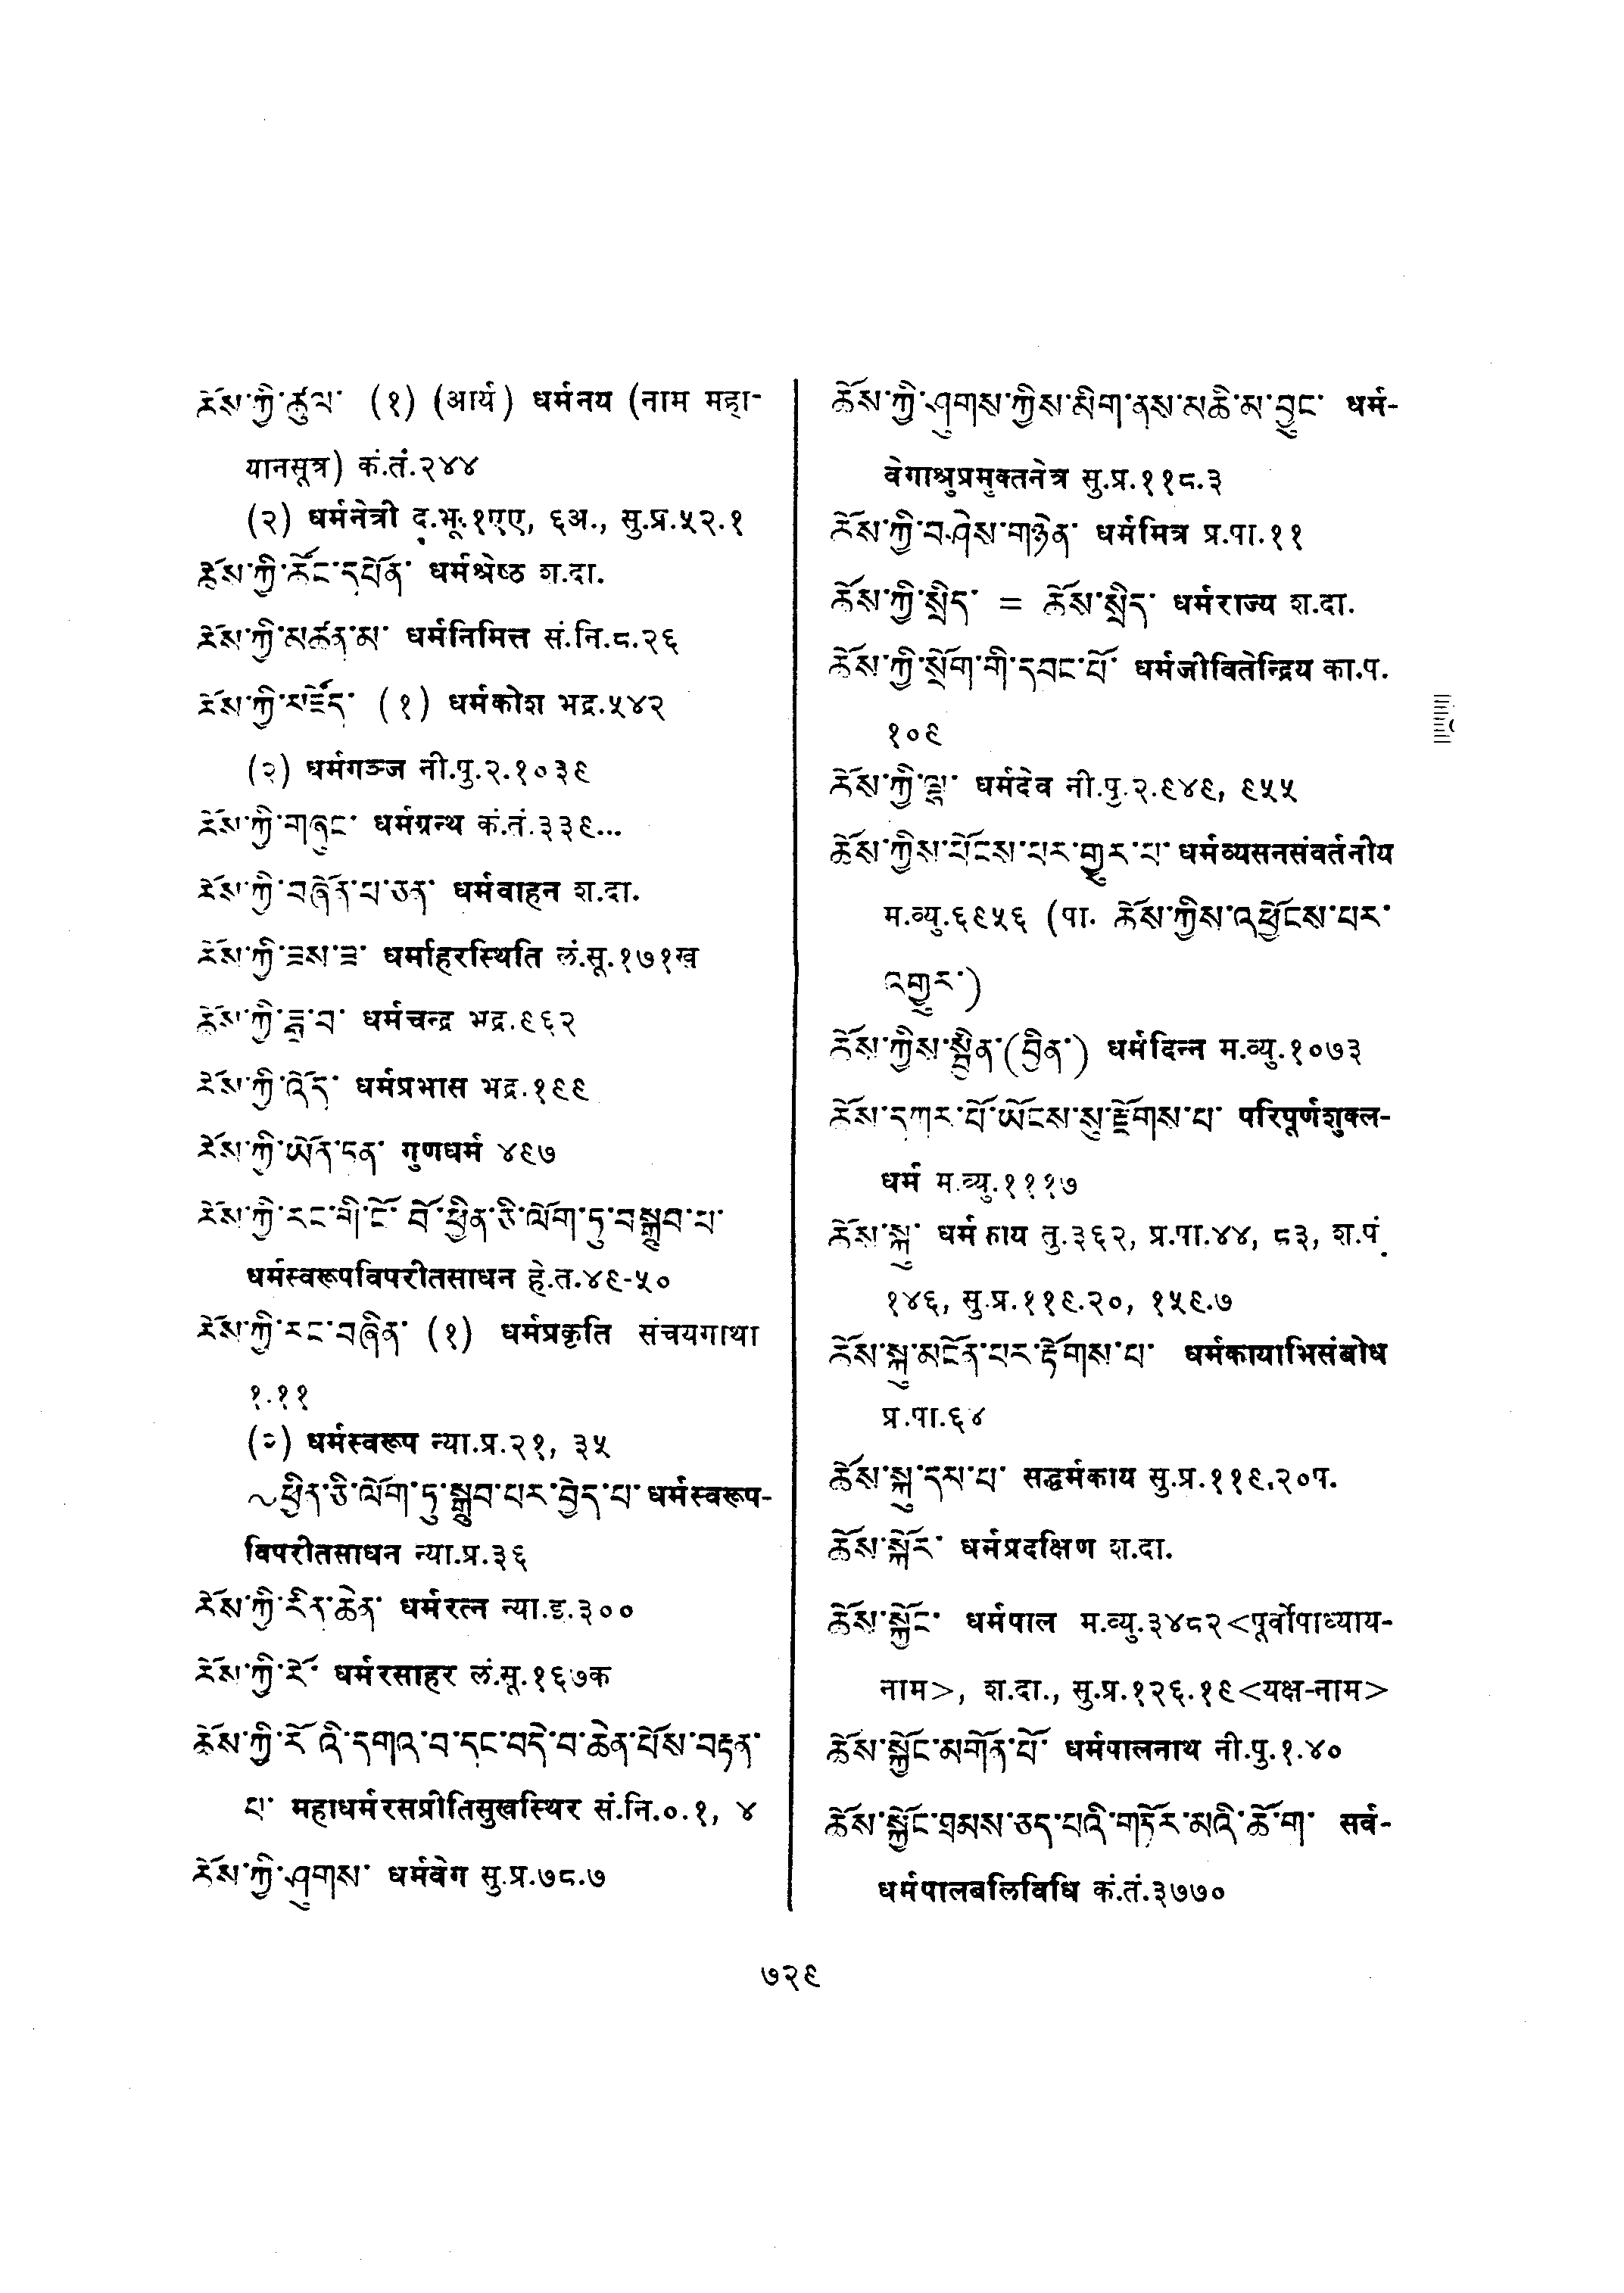 ཆོས་ཀྱི་ཚུལ་ (१) (आर्य) धर्मनय (नाम महा-
यानसूत्र) कं.तं.२४४
(२) धर्मनेत्री द.भू.१एए, ६अ., सु.प्र.५२.१
ཆོས་ཀྱི་ཚོང་དཔོན་ धर्मश्रेष्ठ श.दा.
ཆོས་ཀྱི་མཚན་མ་ धर्मनिमित्त सं.नि.८.२६
ཆོས་ཀྱི་མཛོད་ (१) धर्मकोश भद्र.५४२
(२) धर्मगञ्ज नी.पु.२.१०३९
ཆོས་ཀྱི་གཞུང་ धर्मग्रन्थ कं.तं.३३९...
ཆོས་ཀྱི་བཞོན་པ་ཅན་ धर्मवाहन श.दा.
ཆོས་ཀྱི་ཟས་ཟ་ धर्माहरस्थिति लं.सू.१७१ख
ཆོས་ཀྱི་ཟླ་བ་ धर्मचन्द्र भद्र.९६२
ཆོས་ཀྱི་འོད་ धर्मप्रभास भद्र.१९९
ཆོས་ཀྱི་ཡོན་ཏན་ गुणधर्म ४९७
ཆོས་ཀྱི་རང་གི་ངོ་བོ་ཕྱིན་ཅི་ལོག་ཏུ་བསྒྲུབ་པ་
धर्मस्वरूपविपरीतसाधन हे.त.४९-५०
ཆོས་ཀྱི་རང་བཞིན་ (१) धर्मप्रकृति संचयगाथा
१.११
(२) धर्मस्वरूप न्या.प्र.२१, ३५
~ཕྱིན་ཅི་ལོག་ཏུ་སྒྲུབ་པར་བྱེད་པ་ धर्मस्वरूप-
विपरीतसाधन न्या.प्र.३६
ཆོས་ཀྱི་རིན་ཆེན་ धर्मरत्न न्या.इ.३००
ཆོས་ཀྱི་རོ་ धर्मरसाहर लं.सू.१६७क
ཆོས་ཀྱི་རོ་འི་དགའ་བ་དང་བདེ་བ་ཆེན་པོས་བརྟན་
པ་ महाधर्मरसप्रीतिसुखस्थिर सं.नि.०.१, ४
ཆོས་ཀྱི་ཤུགས་ धर्मवेग सु.प्र.७८.७
ཆོས་ཀྱི་ཤུགས་ཀྱིས་མིག་ནས་མཆི་མ་བྱུང་ धर्म-
वेगाश्रुप्रमुक्तनेत्र सु.प्र.११८.३
ཆོས་ཀྱི་བཤེས་གཉེན་ धर्ममित्र प्र.पा.११
ཆོས་ཀྱི་སྲིད་ = ཆོས་སྲིད་ धर्मराज्य श.दा.
ཆོས་ཀྱི་སྲོག་གི་དབང་པོ་ धर्मजीवितेन्द्रिय का.प.
१०९
ཆོས་ཀྱི་ལྷ་ धर्मदेव नी.पु.२.९४९, ९५५
ཆོས་ཀྱིས་པོངས་པར་གྱུར་པ་ धर्मव्यसनसंवर्तनीय
म.व्यु.६९५६ (पा. ཆོས་ཀྱིས་འཕོངས་པར་
འགྱུར་)
ཆོས་ཀྱིས་སྦྱིན་(བྱིན་) धर्मदिन्न म.व्यु.१०७३
ཆོས་དཀར་པོ་ཡོངས་སུ་རྫོགས་པ་ परिपूर्णशुक्ल-
धर्म म.व्यु.१११७
ཆོས་སྐུ་ धर्मकाय तु.३६२, प्र.पा.४४, ८३, श.पं.
१४६, सु.प्र.११९.२०, १५९.७
ཆོས་སྐུ་མངོན་པར་རྟོགས་པ་ धर्मकायाभिसंबोध
प्र.पा.६४
ཆོས་སྐུ་དམ་པ་ सद्धर्मकाय सु.प्र.११९.२०प.
ཆོས་སྐོར་ धर्मप्रदक्षिण श.दा.
ཆོས་སྐྱོང་ धर्मपाल म.व्यु.३४८२<पूर्वोपाध्याय-
नाम>, श.दा., सु.प्र.१२६.१९<यक्ष-नाम>
ཆོས་སྐྱོང་མགོན་པོ་ धर्मपालनाथ नी.पु.१.४०
ཆོས་སྐྱོང་ཐམས་ཅད་པའི་གཏོར་མའི་ཆོ་ག་ सर्व-
धर्मपालबलिविधि कं.तं.३७७०
७२९